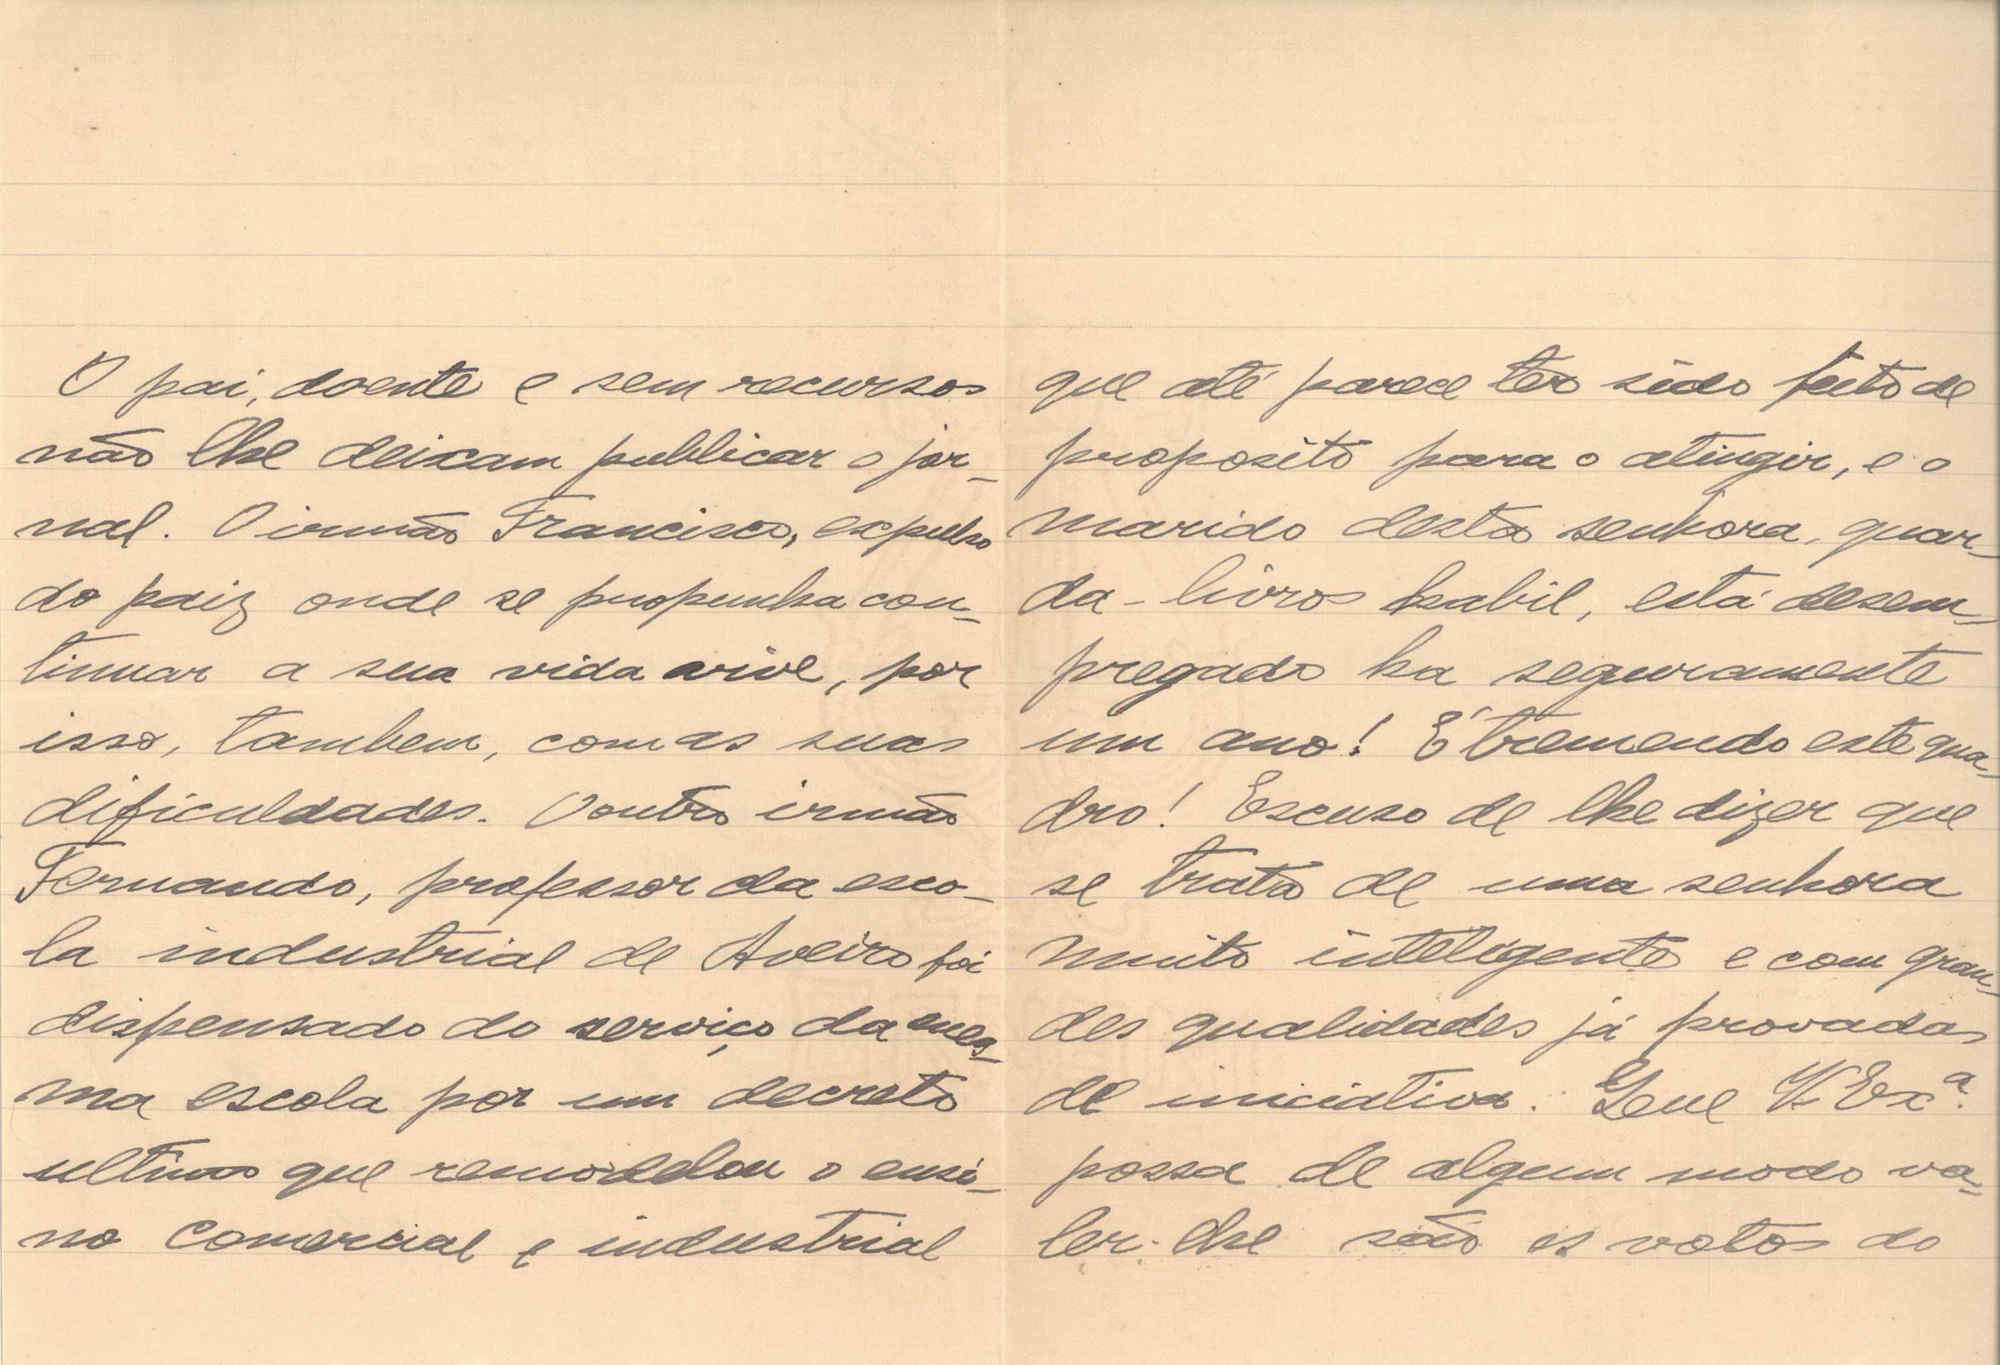 O pai, doente e sem recursos
não lhe deixam publicar o jor-
nal. O irmão Francisco, expulso
do paiz onde se propunha con-
tinuar a sua vida vive, por
isso, tambem, com as suas
dificuldades. O outro irmão
Fernando, professor da esco-
la industrial de Aveiro foi
dispensado do serviço da mes-
ma escola por um decreto
ultimo que remodelou o ensi-
no comercial e industrial
que até parece ter sido feito de
proposito para o atingir, e o
marido desta senhora, guar-
da-livros habil, está desem-
pregado ha seguramente
um ano! É tremendo este qua-
dro! Escuso de lhe dizer que
se trata de uma senhora
muito inteligente e com gran-
des qualidades já provadas
de iniciativa. Que V. Exª.
possa de algum modo va-
ler-lhe são os votos do